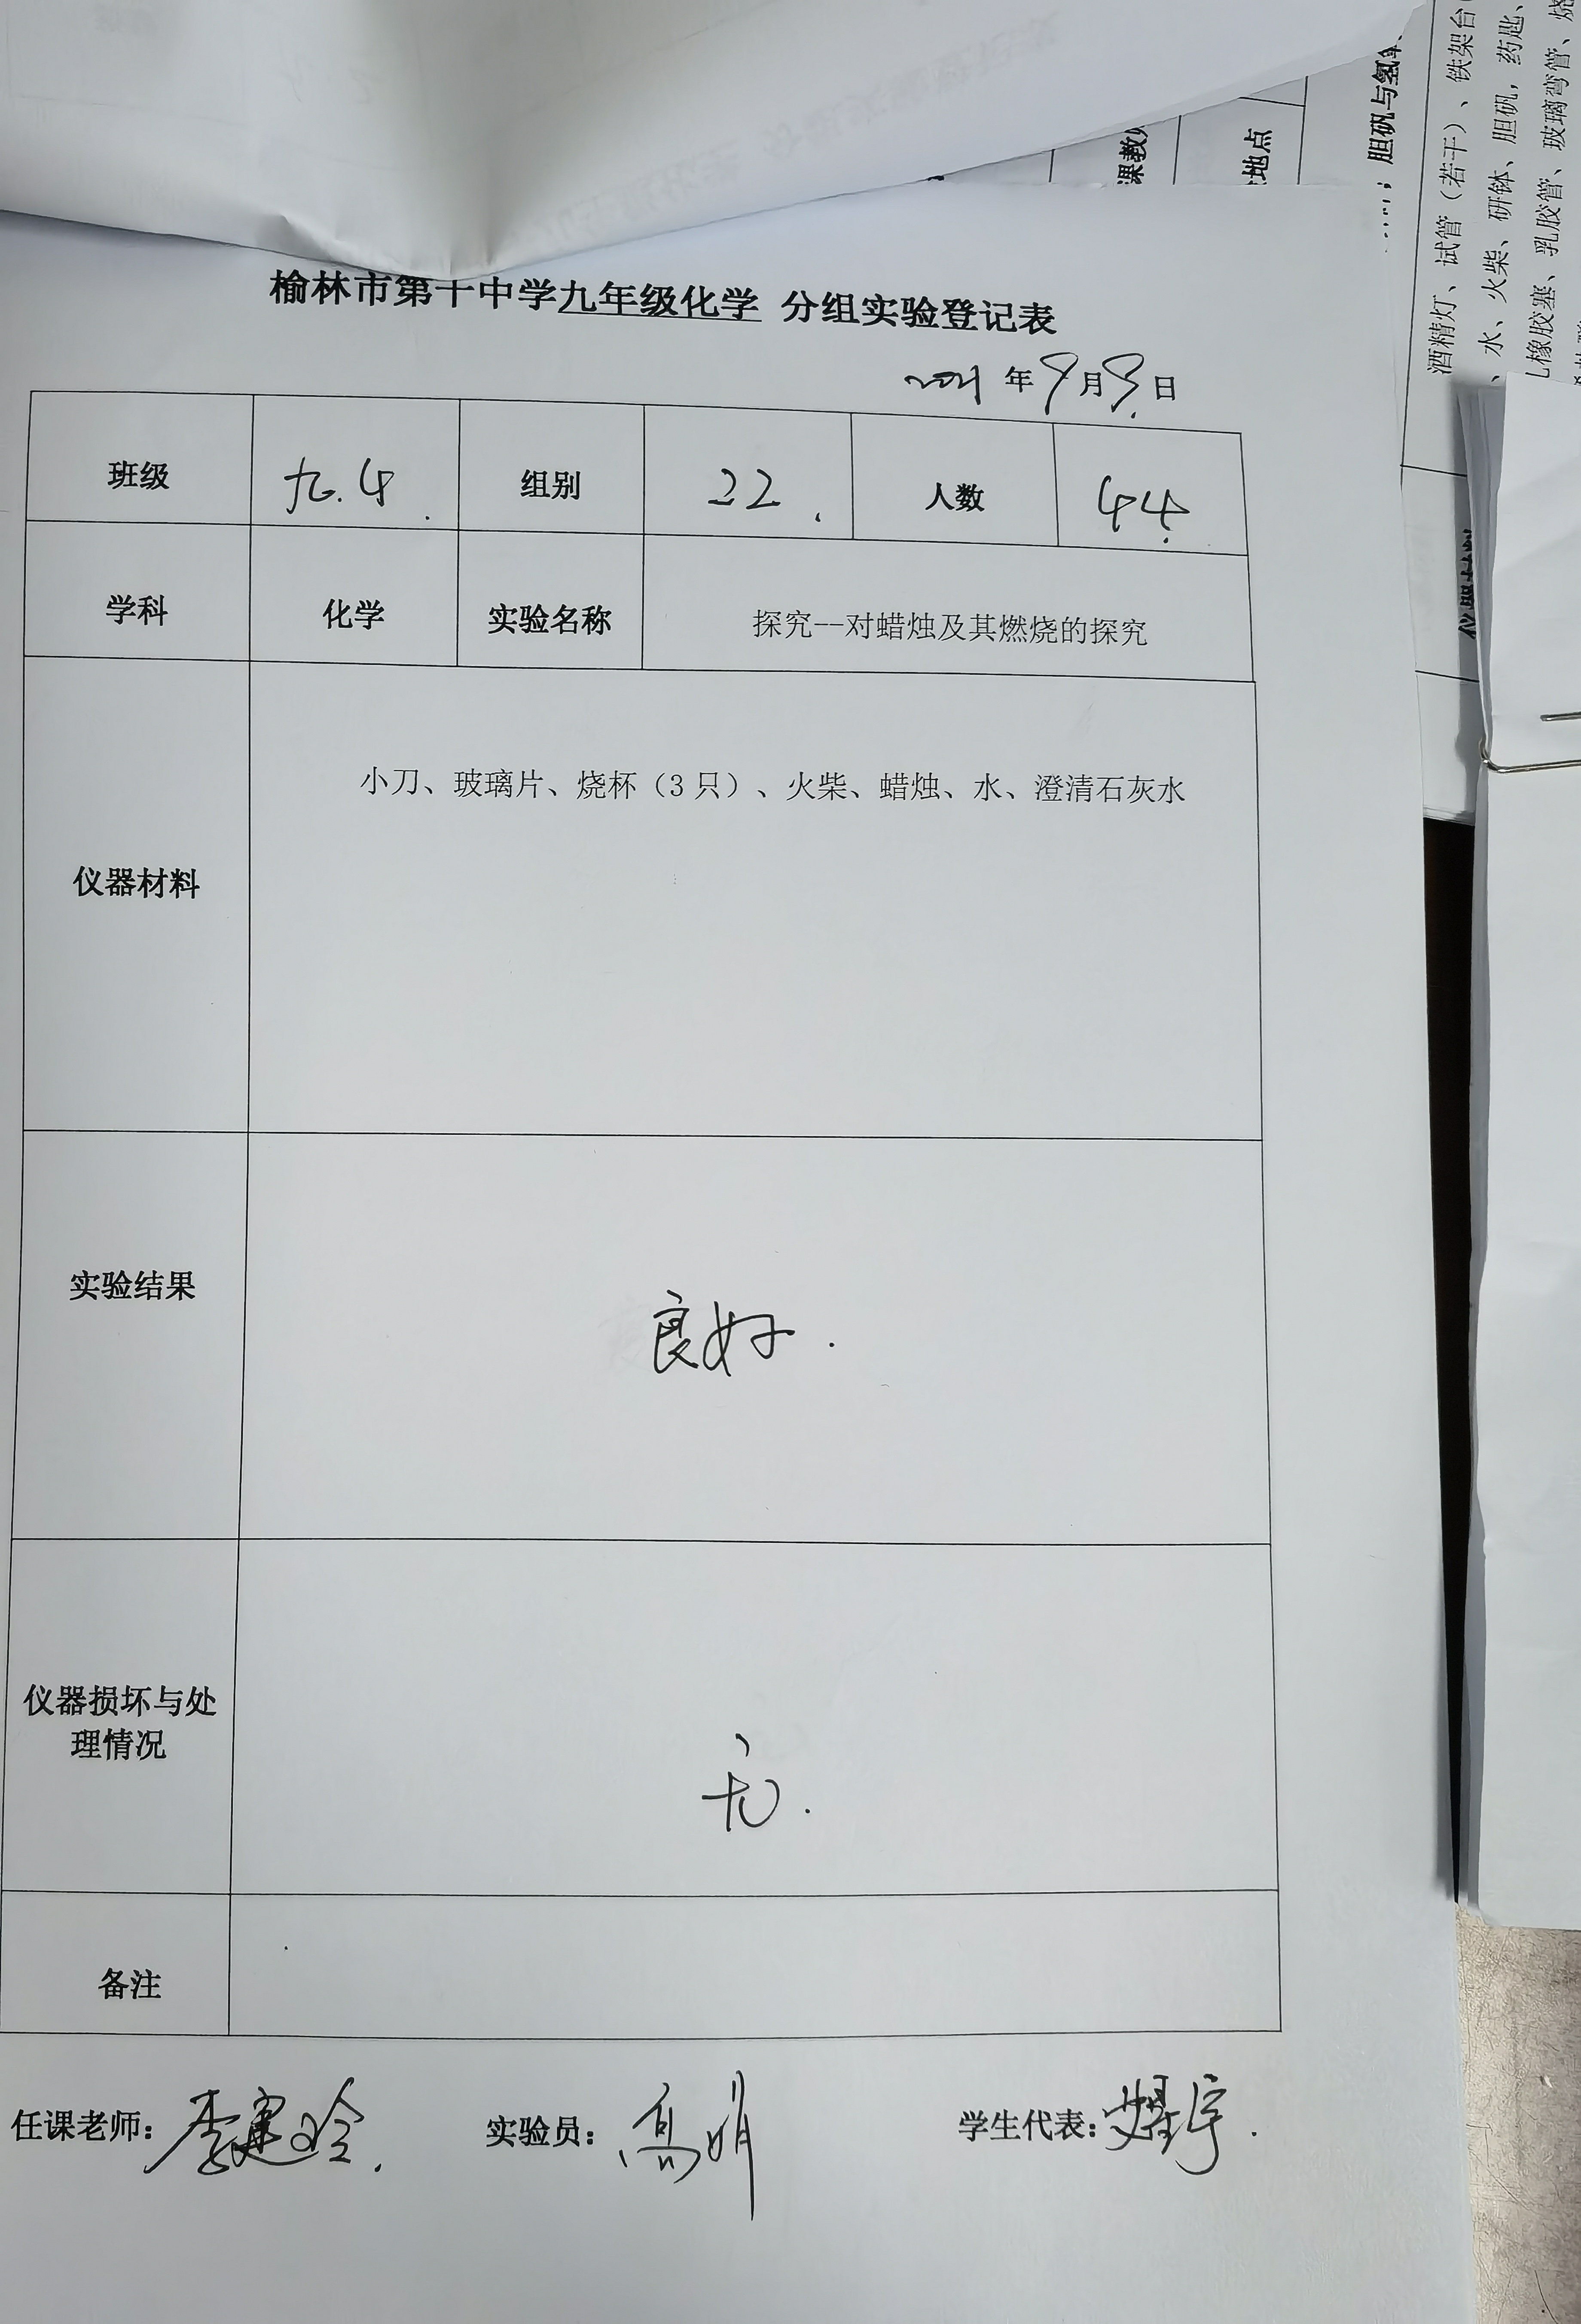 榆林市第十中学九年级化学 分组实验登记表
2021 年 9 月 9. 日
班级 九.4 . 组别 22 . 人数 44.
学科 化学 实验名称 探究--对蜡烛及其燃烧的探究
仪器材料 小刀、玻璃片、烧杯（3 只）、火柴、蜡烛、水、澄清石灰水
实验结果 良好.
仪器损坏与处
理情况
无.
备注
任课老师： 李建玲. 实验员： 高娟 学生代表：
课教
地点
；胆矾与氢
酒精灯、试管（若干）、铁架台
、水、火柴、研钵、胆矾，药匙、
橡胶塞、乳胶管、玻璃弯管、烧